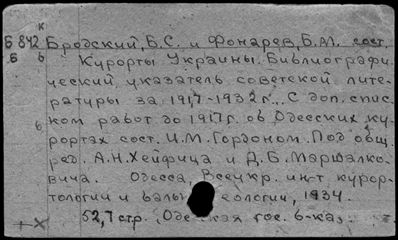 к
Б 842 Бродский, Б.С. и Фонарев, Б.М. сост.
Б б Курорты Украины. Библиографи-
ческий указатель советской лите-
ратуры за 1917-1932 г... С доп. спис-
ком работ до 1917 г. об Одесских ку-
б рортах сост. И.М. Гордоном. Под общ.
ред. А.Н. Хейфица и Д.Б. Маршалко-
вича. Одесса, Всеукр. ин-т курор-
тологии и бальнеологии, 1934.
52,7 стр. (Одесская гос. б-ка)
+х